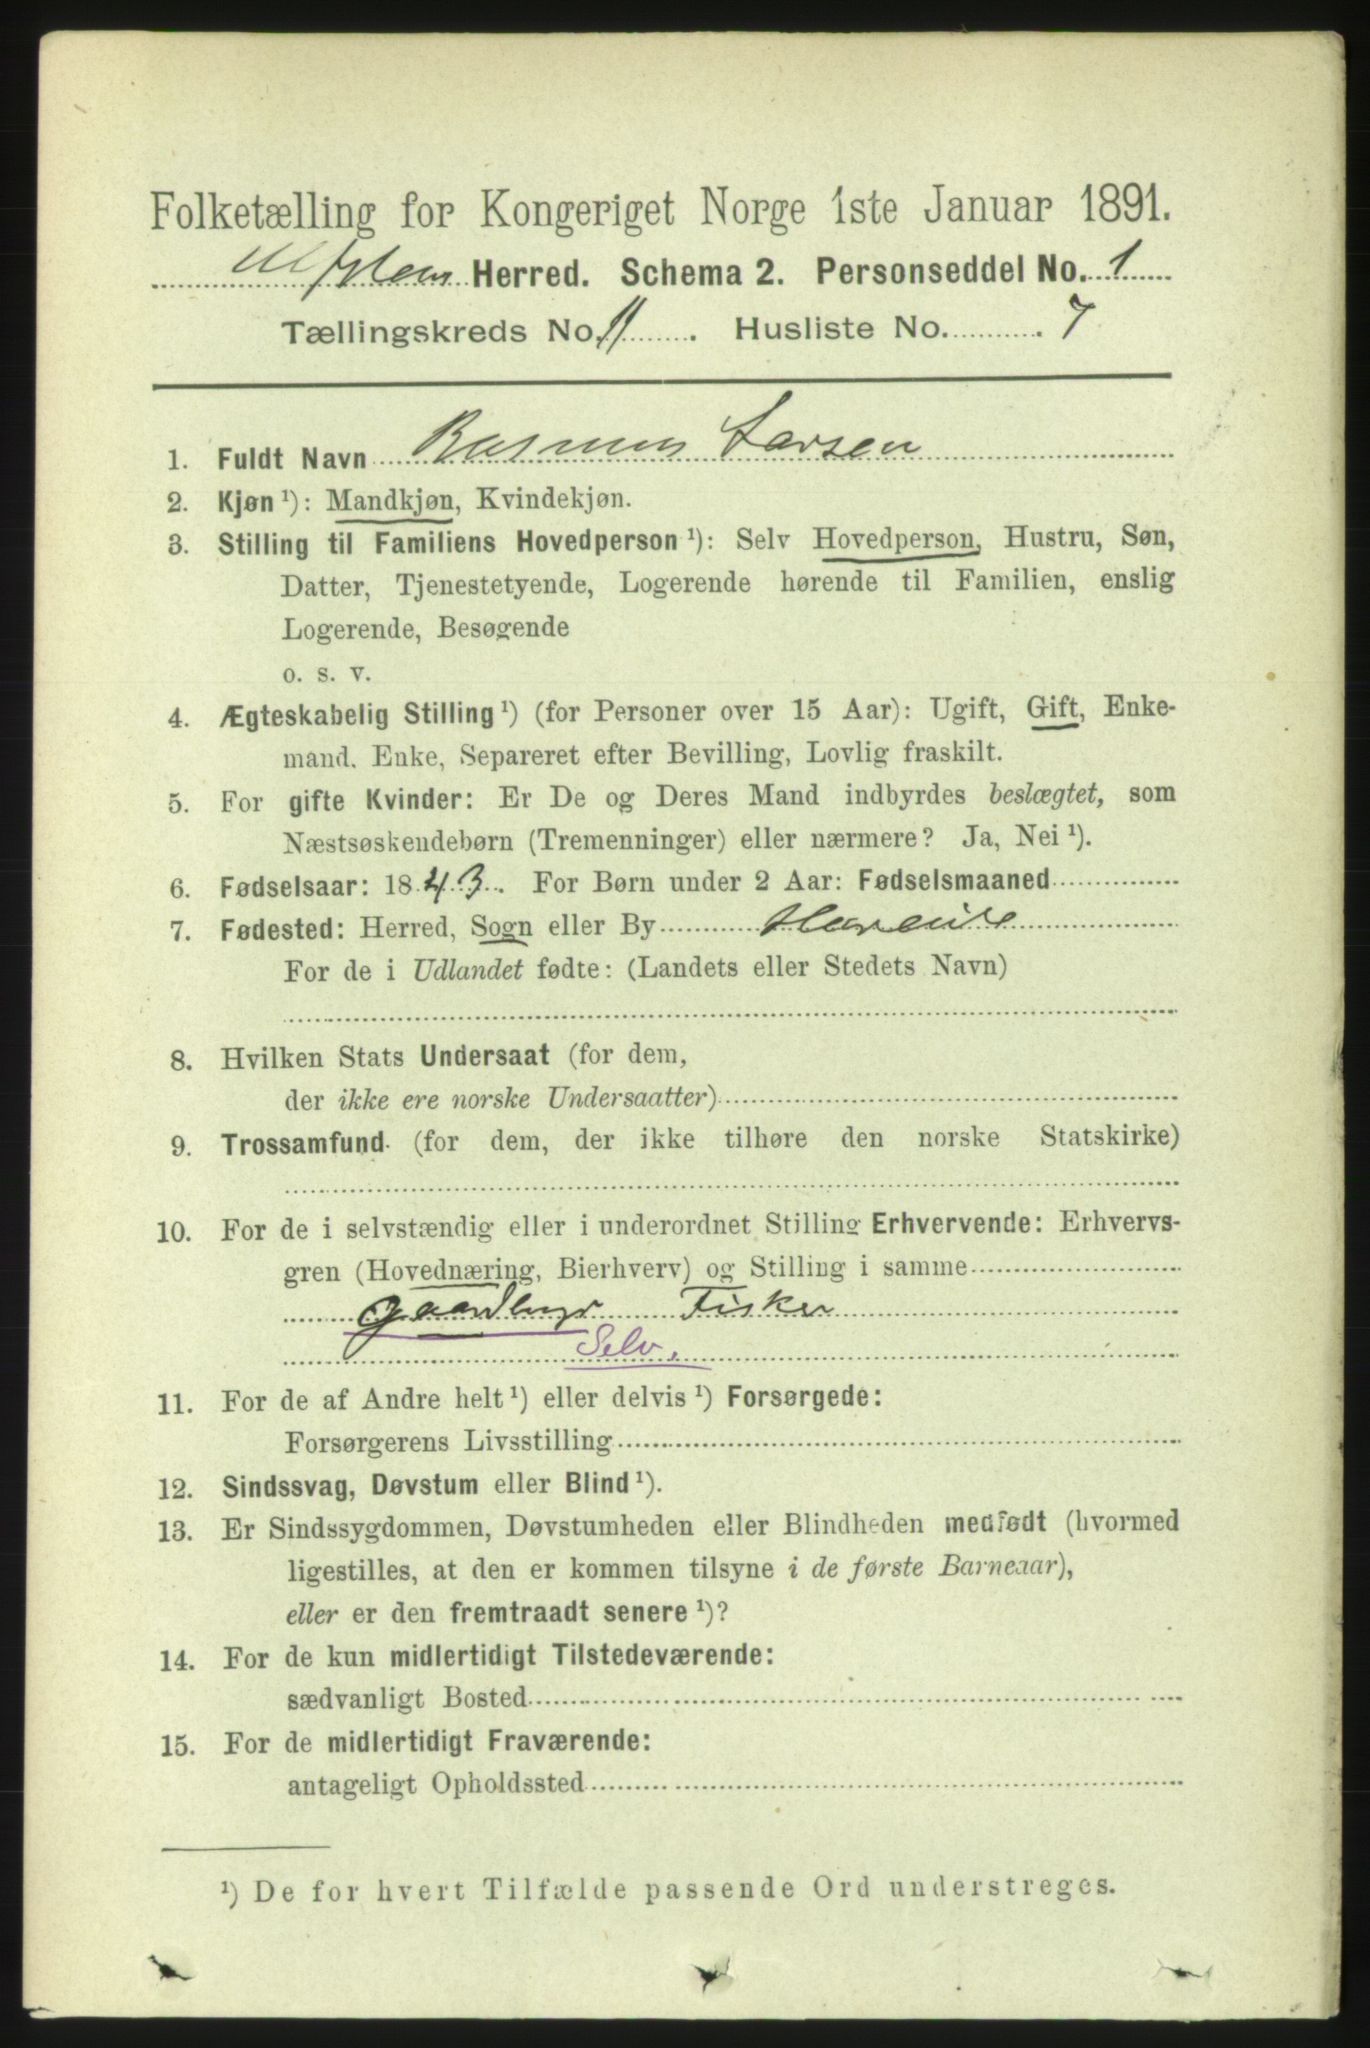 Folketælling for Kongeriget Norge 1ste Januar 1891.
Ulfsten Herred. Schema 2. Personseddel No. 1
Tællingskreds No. 11. Husliste No. 7
1. Fuldt Navn Rasmus Larsen
2. Kjøn ¹): Mandkjøn, Kvindekjøn.
3. Stilling til Familiens Hovedperson ¹): Selv Hovedperson, Hustru, Søn,
Datter, Tjenestetyende, Logerende hørende til Familien, enslig
Logerende, Besøgende
o. s. v.
4. Ægteskabelig Stilling ¹) (for Personer over 15 Aar): Ugift, Gift, Enke-
mand. Enke, Separeret efter Bevilling, Lovlig fraskilt.
5. For gifte Kvinder: Er De og Deres Mand indbyrdes beslægtet, som
Næstsøskendebørn (Tremenninger) eller nærmere? Ja, Nei ¹).
6. Fødselsaar: 1843. For Børn under 2 Aar: Fødselsmaaned
7. Fødested: Herred, Sogn eller By Hareide
For de i Udlandet fødte: (Landets eller Stedets Navn)
8. Hvilken Stats Undersaat (for dem,
der ikke ere norske Undersaatter)
9. Trossamfund (for dem, der ikke tilhøre den norske Statskirke)
10. For de i selvstændig eller i underordnet Stilling Erhvervende: Erhvervs-
gren (Hovednæring, Bierhverv) og Stilling i samme
Fisker
Selv.
11. For de af Andre helt ¹) eller delvis ¹) Forsørgede:
Forsørgerens Livsstilling
12. Sindssvag, Døvstum eller Blind ¹).
13. Er Sindssygdommen, Døvstumheden eller Blindheden medfødt (hvormed
ligestilles, at den er kommen tilsyne i de første Barneaar),
eller er den fremtraadt senere ¹)?
14. For de kun midlertidigt Tilstedeværende:
sædvanligt Bosted
15. For de midlertidigt Fraværende:
antageligt Opholdssted
¹) De for hvert Tilfælde passende Ord understreges.